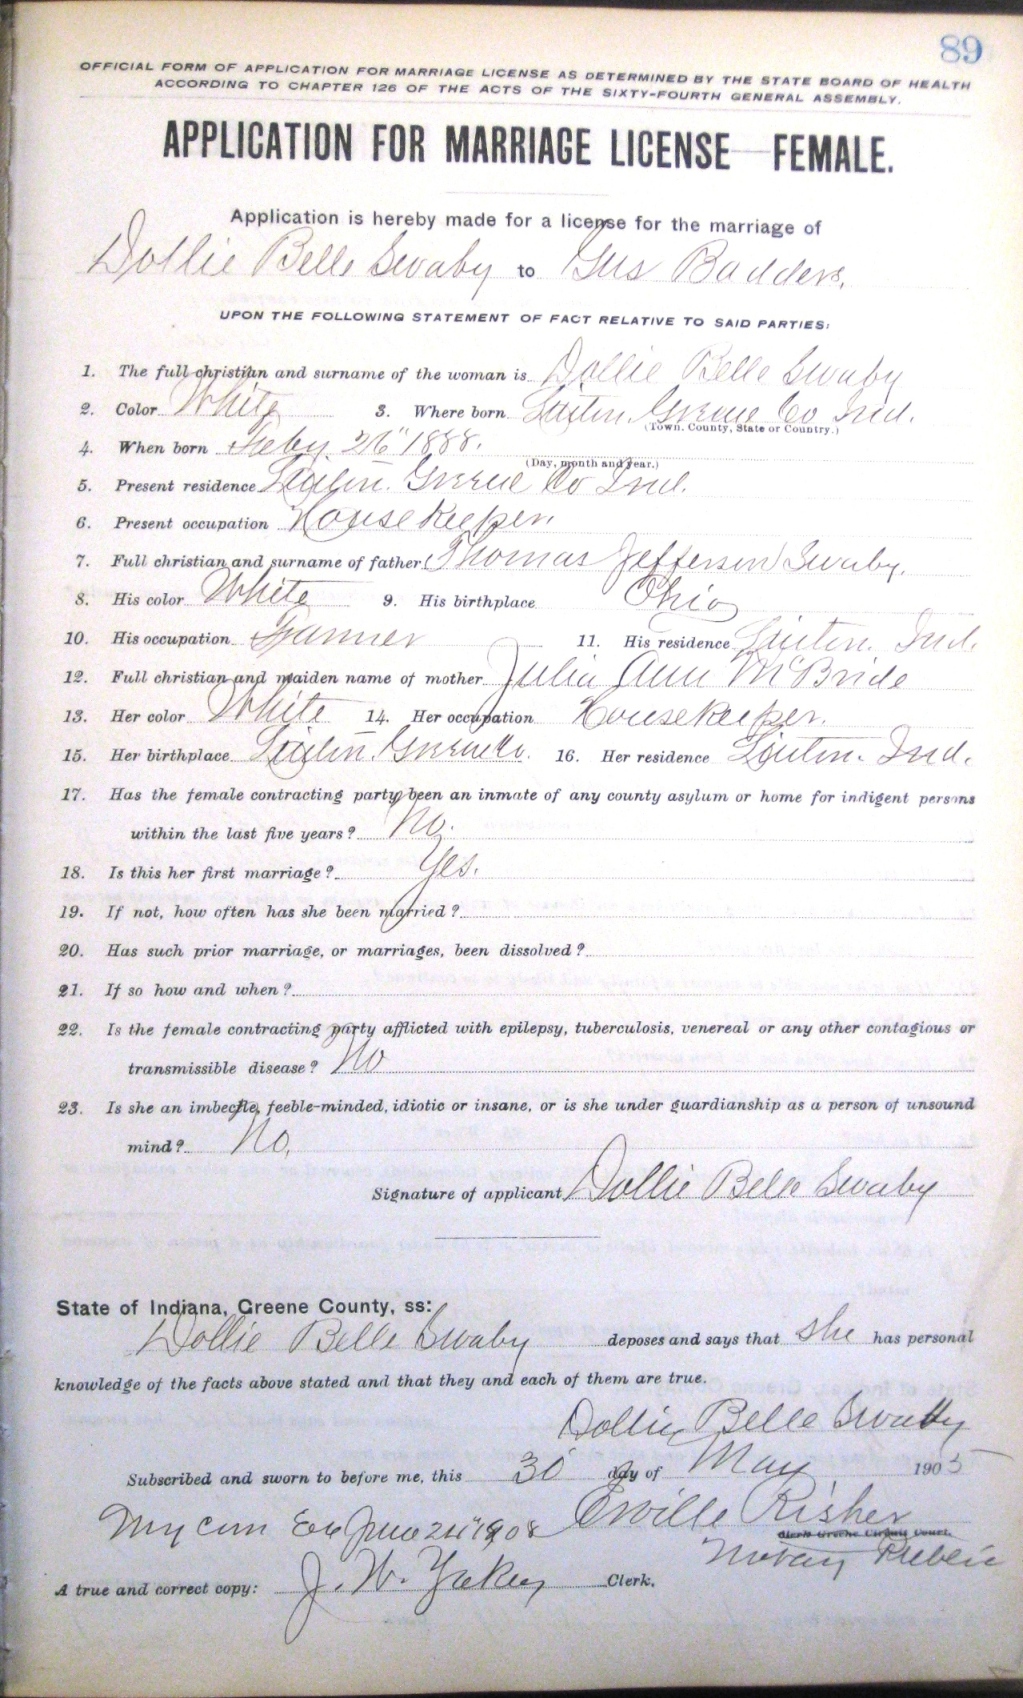 89
OFFICIAL FORM OF APPLICATION FOR MARRIAGE LICENSE AS DETERMINED BY THE STATE BOARD OF HEALTH
ACCORDING TO CHAPTER 126 OF THE ACTS OF THE SIXTY-FOURTH GENERAL ASSEMBLY.
APPLICATION FOR MARRIAGE LICENSE—FEMALE.
Application is hereby made for a license for the marriage of
Dollie Belle Swaby to Gus Badders.
UPON THE FOLLOWING STATEMENT OF FACT RELATIVE TO SAID PARTIES:
1. The full christian and surname of the woman is Dollie Belle Swaby
2. Color White 3. Where born Linton. Greene Co Ind.
(Town, County, State or Country.)
4. When born Feby. 26" 1888.
(Day, month and year.)
5. Present residence Linton. Greene Co Ind.
6. Present occupation Housekeeper.
7. Full christian and surname of father Thomas Jefferson Swaby.
8. His color White 9. His birthplace Ohio
10. His occupation Farmer 11. His residence Linton. Ind.
12. Full christian and maiden name of mother Julia Ann McBride
13. Her color White 14. Her occupation Housekeeper.
15. Her birthplace Linton. Greene Co. 16. Her residence Linton. Ind.
17. Has the female contracting party been an inmate of any county asylum or home for indigent persons
within the last five years? No.
18. Is this her first marriage? Yes.
19. If not, how often has she been married?
20. Has such prior marriage, or marriages, been dissolved?
21. If so how and when?
22. Is the female contracting party afflicted with epilepsy, tuberculosis, venereal or any other contagious or
transmissible disease? No
23. Is she an imbecile, feeble-minded, idiotic or insane, or is she under guardianship as a person of unsound
mind? No.
Signature of applicant Dollie Belle Swaby
State of Indiana, Greene County, ss:
Dollie Belle Swaby deposes and says that she has personal
knowledge of the facts above stated and that they and each of them are true.
Dollie Belle Swaby
Subscribed and sworn to before me, this 30 day of May 1905
My Com Ex June 24 1908 Orville Risher
Clerk Greene Circuit Court.
Notary Public
A true and correct copy: J. W. Yakey Clerk.